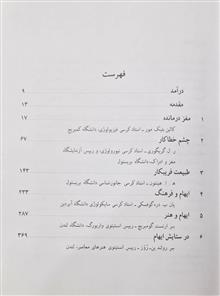 فهرست
درآمد ۹
مقدمه ۱۳
۱ مغز درمانده ۱۷
کالین بلیک مور - استاد کرسی فیزیولوژی، دانشگاه کمبریج
۲ چشم خطاکار ۶۷
ر. ل. گریگوری - استاد کرسی نورولوژی، و رییس آزمایشگاه
مغز و ادراک، دانشگاه بریستول
۳ طبیعت فریبکار ۱۴۳
ه. ا. هینتون - استاد کرسی جانورشناسی دانشگاه بریستول
۴ ابهام و فرهنگ ۲۳۳
یان ب. دره‌گوسکی - استاد کرسی سایکولوژی دانشگاه آبردین
۵ ابهام و هنر ۲۸۷
سر ارنست گومبریچ - رییس انستیتوی واربورگ، دانشگاه لندن
۶ در ستایش ابهام ۳۶۹
سر رولند پن‌رُوز - رییس انستیتوی هنرهای معاصر، لندن